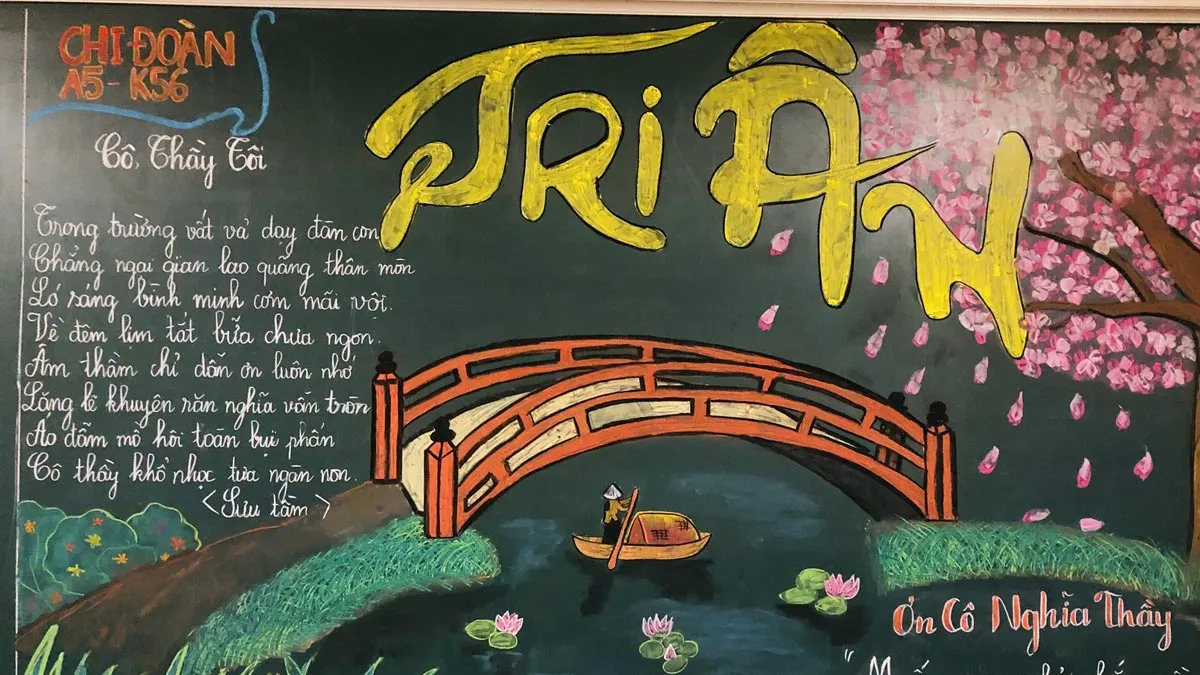 CHI ĐOÀN
A5 - K56
TRI ÂN
Cô, Thầy Tôi
Trong trường vất vả dạy đàn con
Chẳng ngại gian lao quãng thân mòn
Ló sáng bình minh cơm mãi vội.
Về đêm lịm tắt bữa chưa ngon.
Âm thầm chỉ dẫn ơn luôn nhớ
Lặng lẽ khuyên răn nghĩa vấn tròn
Áo đẫm mồ hôi toàn bụi phấn
Cô thầy khổ nhọc tựa ngàn non.
<Sưu tầm>
Ơn Cô Nghĩa Thầy